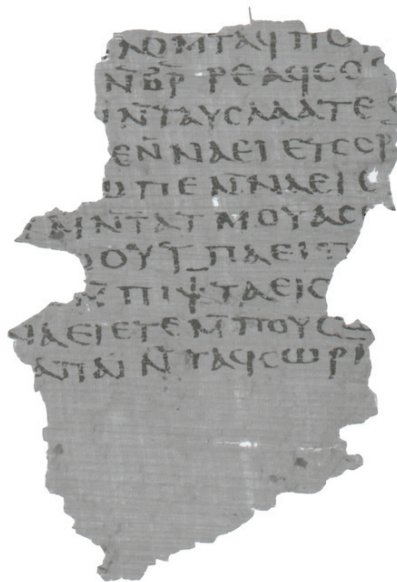 ⲛⲟⲙⲧⲁϥ ⲡⲟ
ⲛ̄ⲃⲣ̄ⲣⲉ ⲁϥⲥⲟ
ⲛ̄ⲧⲁⲩⲥⲗⲁⲁⲧⲉ
ⲉⲛ̄ ⲛⲁⲉⲓ ⲉⲧⲥⲟⲣ
ⲱ ⲡⲉ ⲛ̄ⲛⲁⲉⲓ
ⲙⲛ̄ⲧⲁⲧⲙⲟⲩ ⲁⲥ
ⲟⲩⲧ̄ ⲡⲁⲉⲓ
ⲙ̄ⲡⲓⲯⲧⲁⲉⲓⲟ
ⲛⲁⲉⲓ ⲉⲧⲉ ⲙ̄ⲡⲟⲩⲥⲱ
ⲁⲡⲁⲓ̈ ⲛ̄ⲧⲁϥⲥⲱⲣⲙ